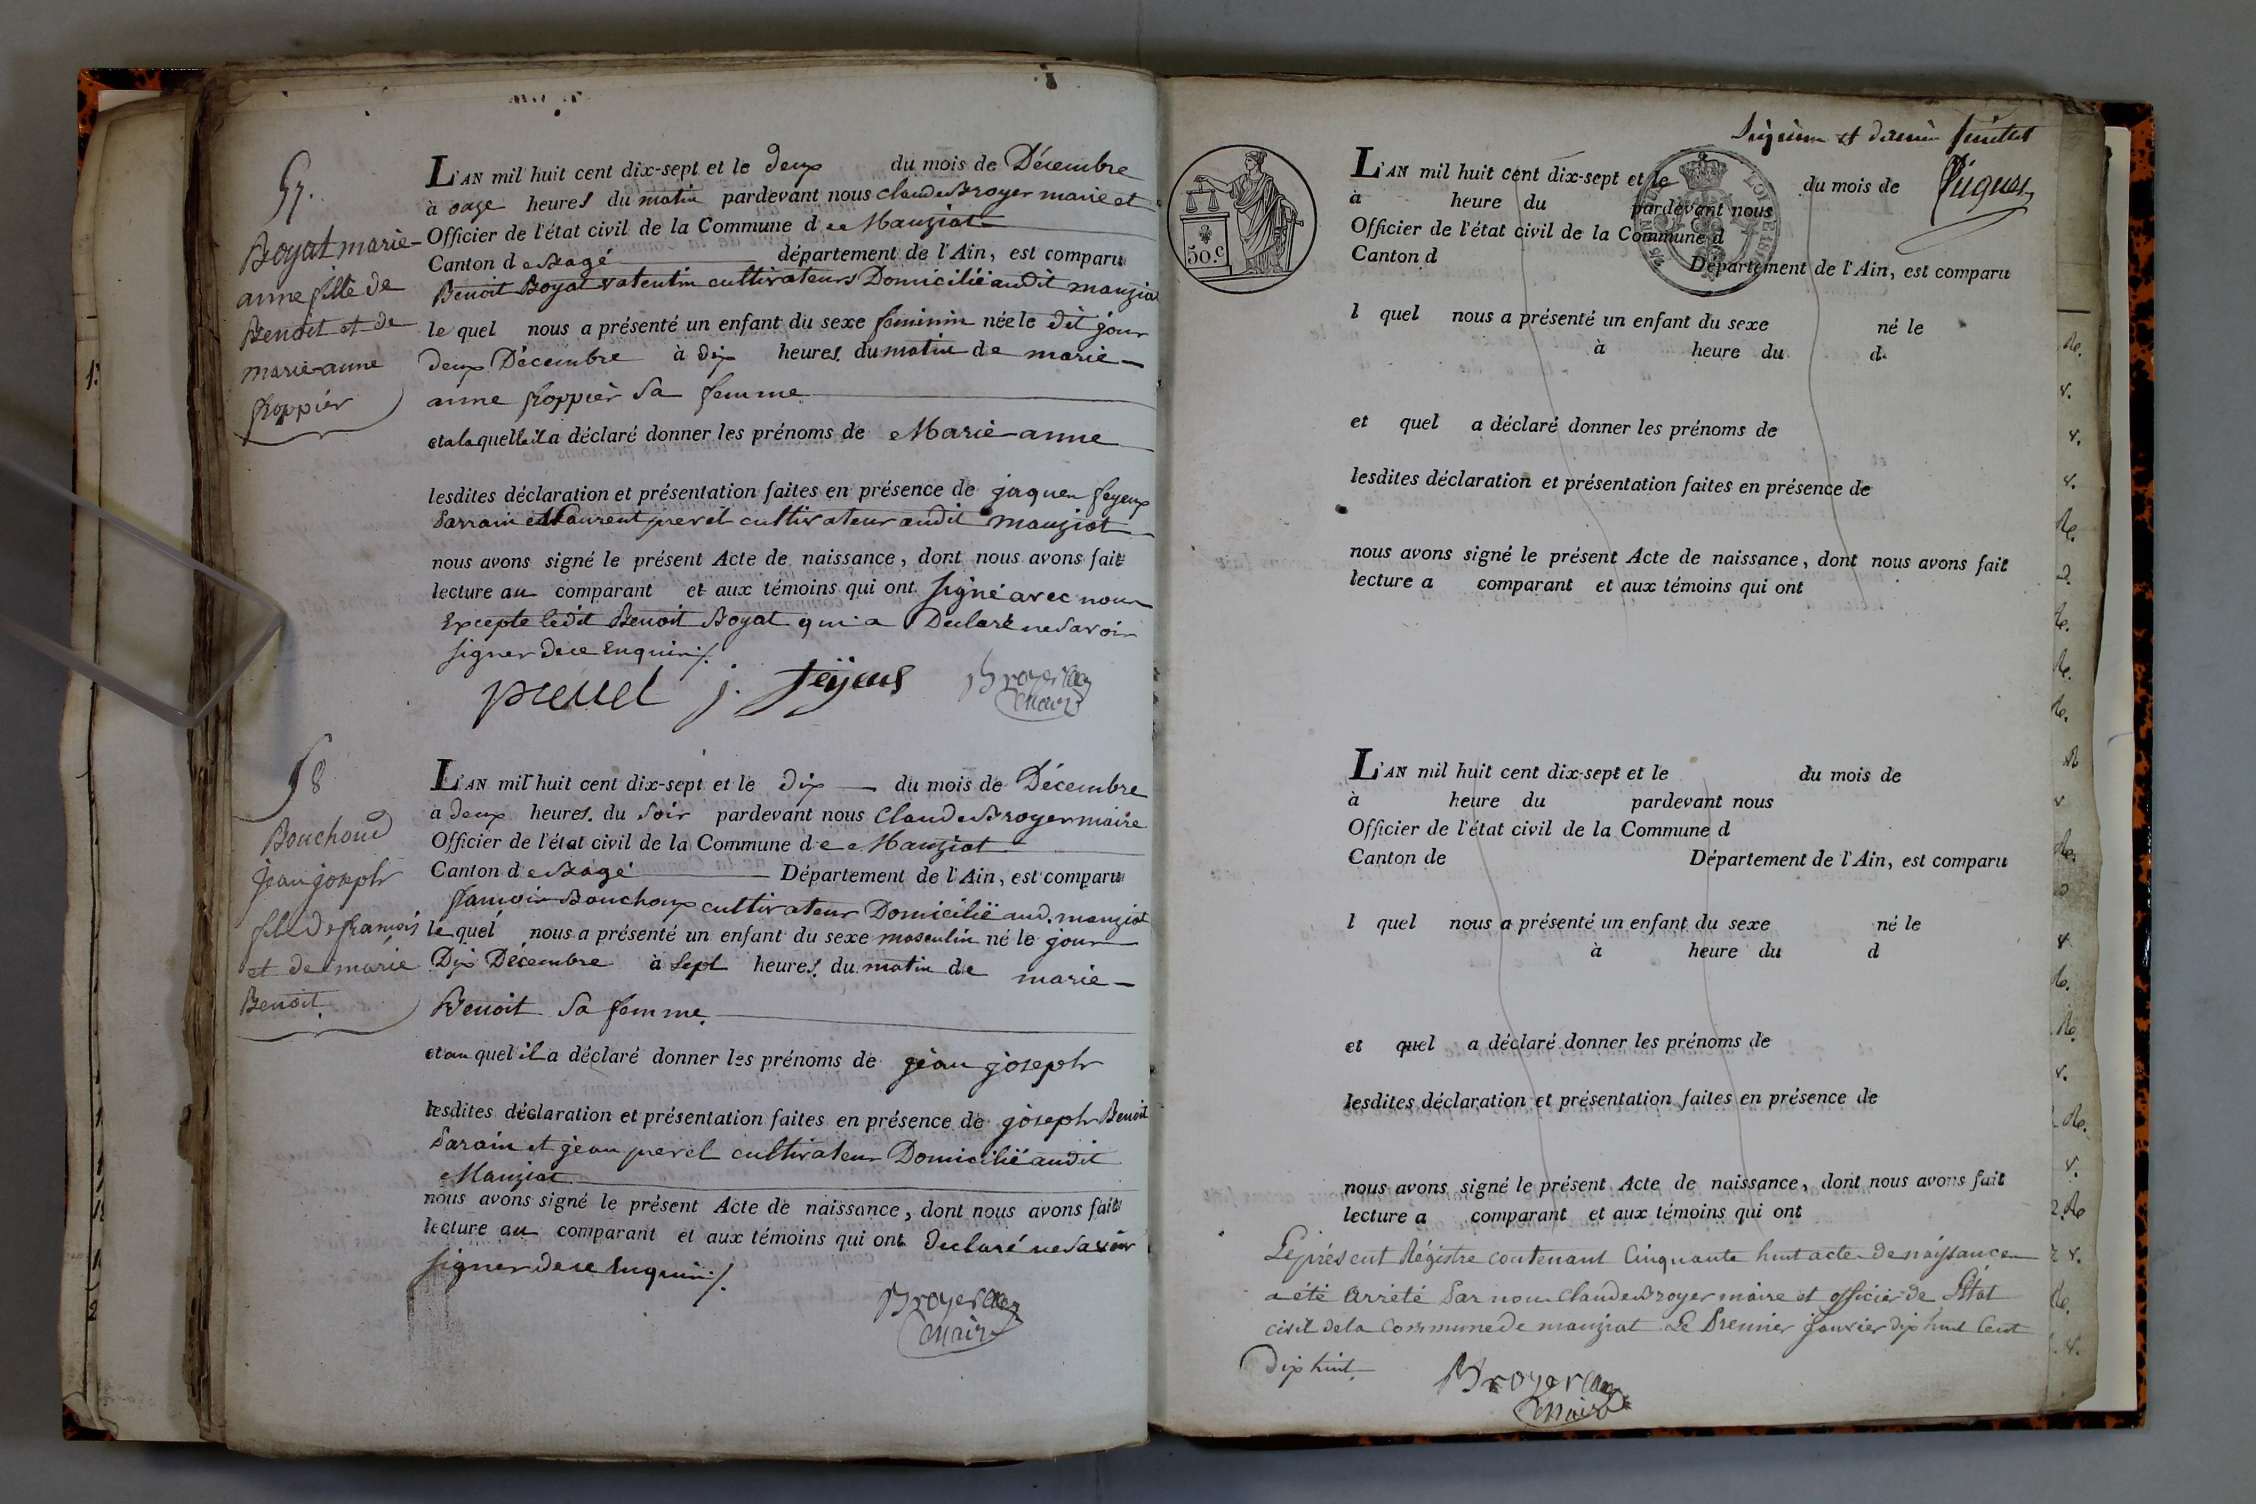 57.
Boyat marie-
anne fille de
Benoit et de
marie-anne
froppier
L'AN mil huit cent dix-sept et le deux du mois de Décembre
à onze heures du matin pardevant nous Claude Broyer maire et
Officier de l'état civil de la Commune de Manziat
Canton de Bagé département de l'Ain, est comparu
Benoit Boyat valentin cultivateurs Domicilié audit manziat
le quel nous a présenté un enfant du sexe feminin née le dit jour
deux Décembre à dix heures du matin de marie-
anne froppier Sa femme
et a la quelle il a déclaré donner les prénoms de Marie-anne
lesdites déclaration et présentation faites en présence de jaques feyeux
Parrain et Laurent prevel cultivateur audit manziat
nous avons signé le présent Acte de naissance, dont nous avons fait
lecture au comparant et aux témoins qui ont Signé avec nous
Excepté ledit Benoit Boyat qui a Declaré ne Savoir
signer de ce Enquir./.
prevel j. feÿeus Broyer
maire
58
Bouchoud
jean joseph
fils de françois
et de marie
Benoit.
L'AN mil huit cent dix-sept et le dix du mois de Décembre
à deux heures du Soir pardevant nous Claude Broyer maire
Officier de l'état civil de la Commune de Manziat
Canton de Bagé Département de l'Ain, est comparu
françois Bouchoux cultivateur Domicilié aud. manziat
le quel nous a présenté un enfant du sexe masculin né le jour
Dix Décembre à Sept heures du matin de marie-
Benoit Sa femme.
et au quel il a déclaré donner les prénoms de jean joseph
lesdites déclaration et présentation faites en présence de joseph Benoit
Parain et jean prevel cultivateur Domicilié audit
Manziat
nous avons signé le présent Acte de naissance, dont nous avons fait
lecture au comparant et aux témoins qui ont declaré ne Savoir
signer de ce Enquir./.
Broyer
maire
et dernier feuillet
50.C
L'AN mil huit cent dix-sept et le du mois de
à heure du pardevant nous
Officier de l'état civil de la Commune d
Canton d Département de l'Ain, est comparu
l quel nous a présenté un enfant du sexe né le
à heure du d
et quel a déclaré donner les prénoms de
lesdites déclaration et présentation faites en présence de
nous avons signé le présent Acte de naissance, dont nous avons fait
lecture a comparant et aux témoins qui ont
L'AN mil huit cent dix-sept et le du mois de
à heure du pardevant nous
Officier de l'état civil de la Commune d
Canton de Département de l'Ain, est comparu
l quel nous a présenté un enfant du sexe né le
à heure du d
et quel a déclaré donner les prénoms de
lesdites déclaration et présentation faites en présence de
nous avons signé le présent Acte de naissance, dont nous avons fait
lecture a comparant et aux témoins qui ont
Le présent Régistre contenant Cinquante huit acte de naissance
a été arrêté Par nous Claude Broyer maire et officier de l'état
civil de la Commune de manziat Le Premier janvier dix huit Cent
dix huit.
Broyer
maire